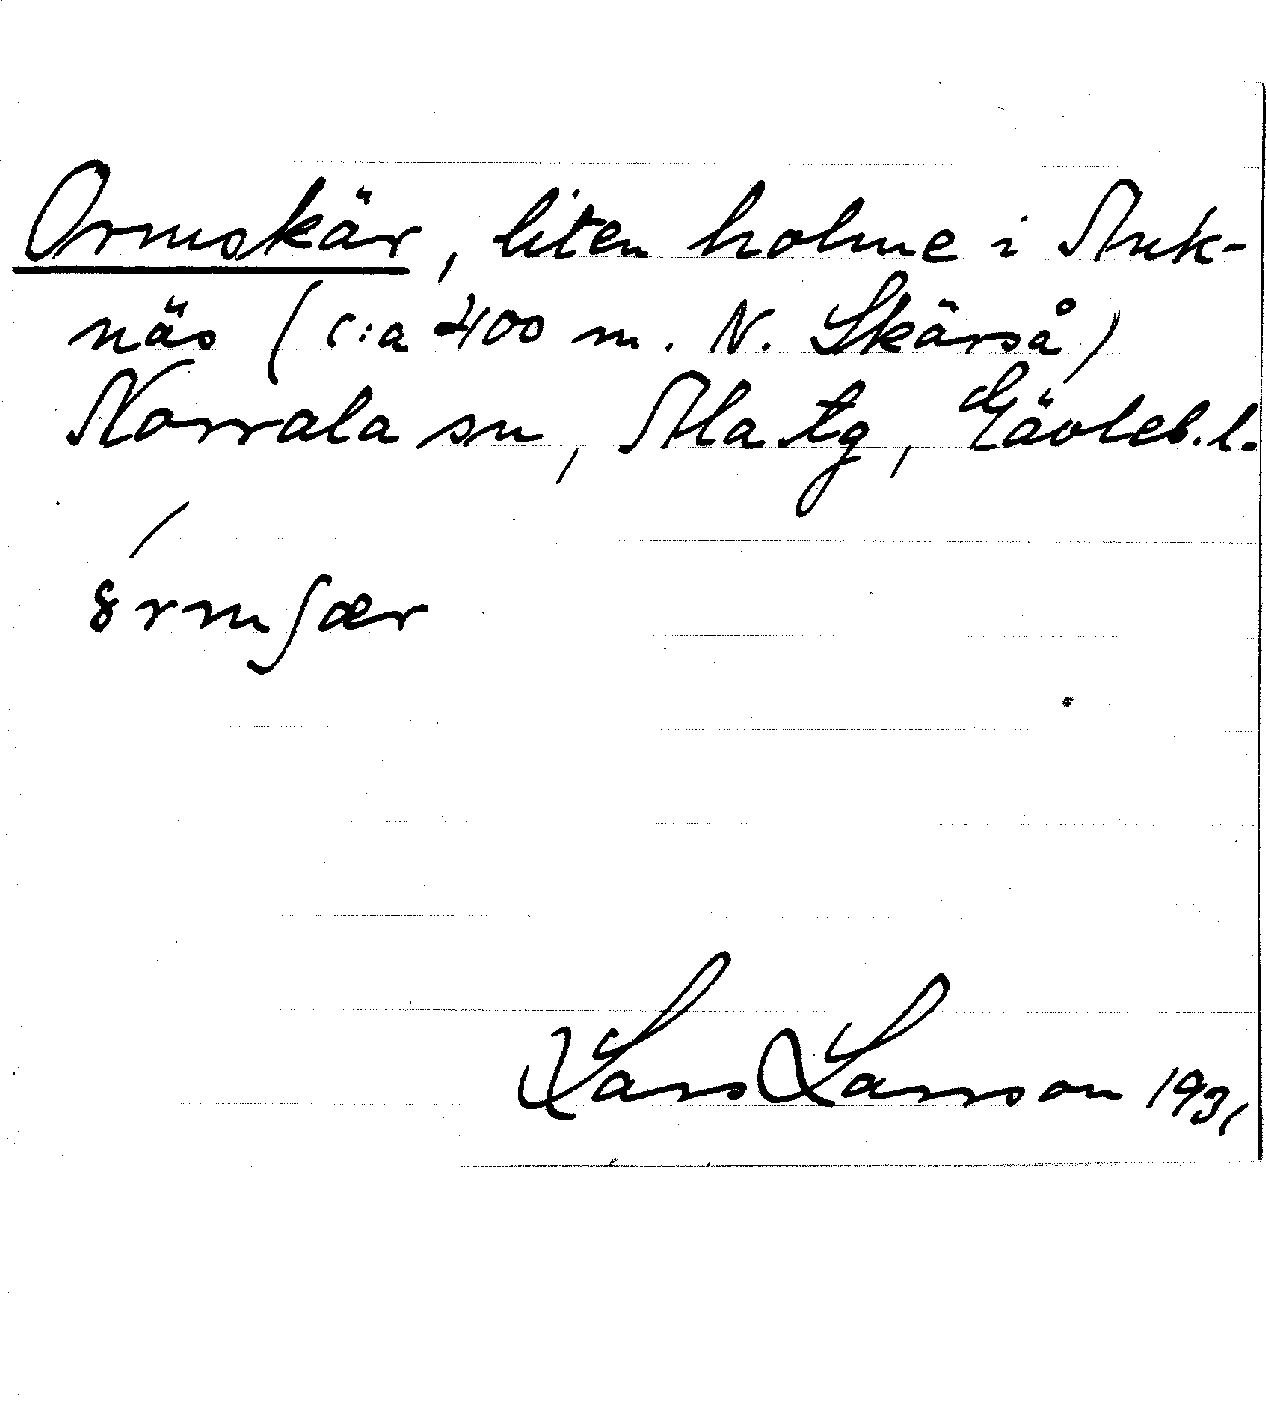 Ormskär, liten holme i Stuk-
näs (c:a 400 m. N. Skärså)
Norrala sn, Ala tg, Gävleb.l.
ormʃær
Lars Larsson 1931